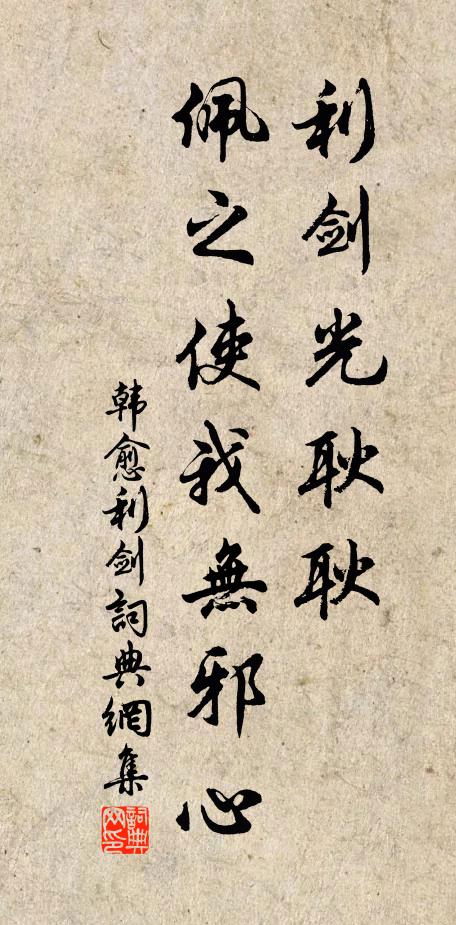 利剑光耿耿
佩之使我無邪心
韩愈利剑詞典網集
詞典网印